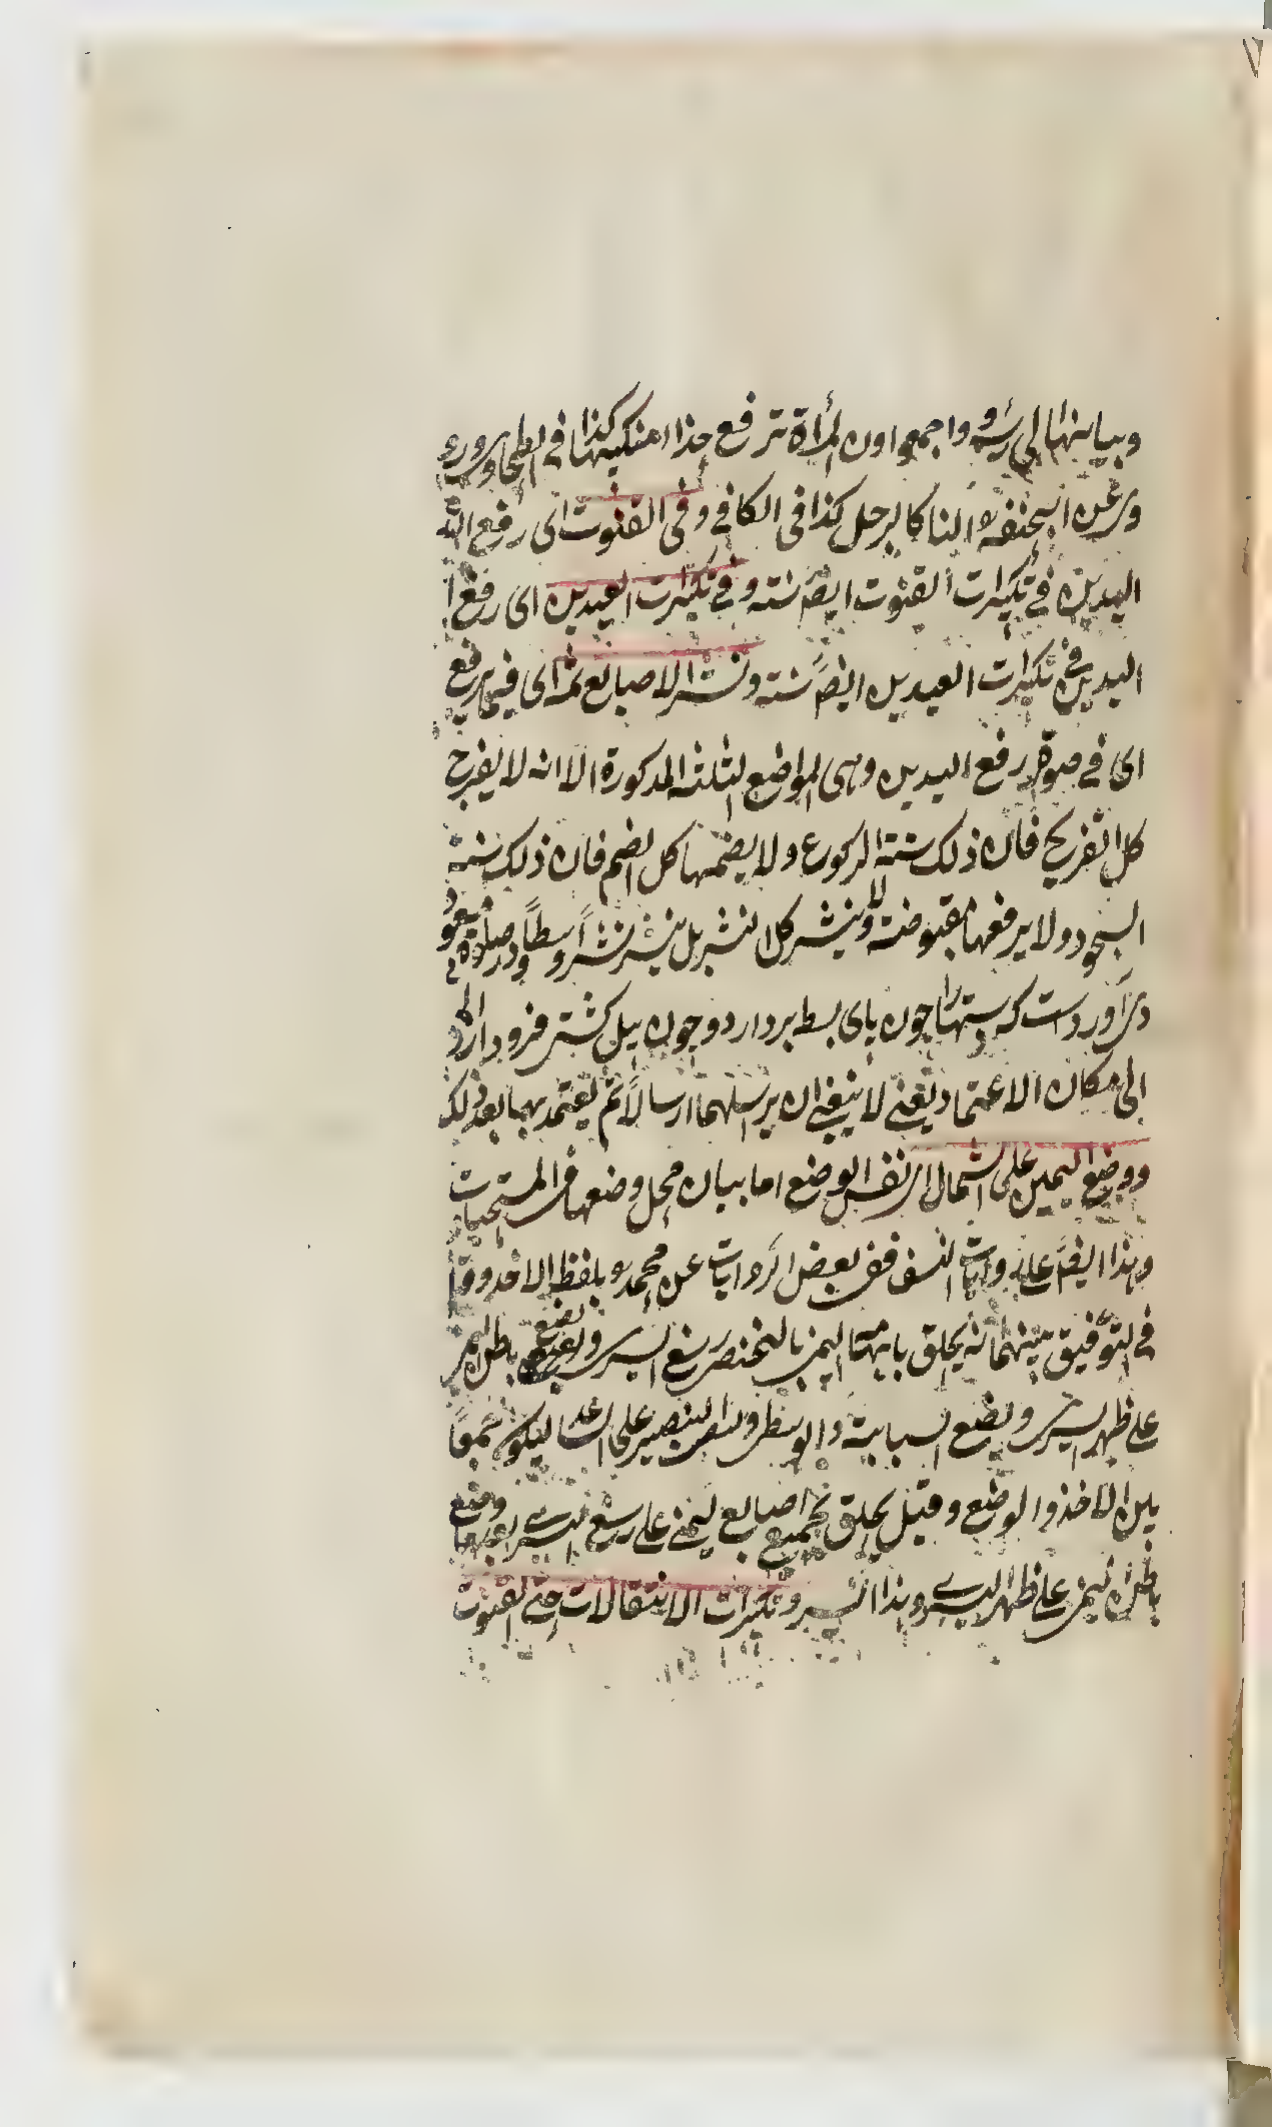 واجمعوا ان المرأة ترفع حذاء منكبيها كذا في الطحاوي وروى
وى عن ابيحنيفة انها كالرجل كذا فى الكافي وفى القنوت اى رفع
اليدين في تكبيرات القنوت ايضًا سنته وفي تكبيرات العيدين اى رفع
اليدين في تكبيرات العيدين ايضًا سنته ونشر الاصابع ثمه اى فيما يرفع
اى في صورة رفع اليدين وهى المواضع الثلثه المذكورة الا انه لا يفرج
كل التفريج فان ذلك سنته الركوع ولا يضمها كل الضم فان ذلك سنته
السجود ولا يرفعها مقبوضته ولا ينشر كل النشر بل ينشر نشرًا وسطًا ودر صلوة
اورده است كه دستها را چون باى بسط بردارد و چون بيل كشتى فرود آرد
الى مكان الاعتماد يعنى لا ينبغى ان يرسلهما ارسالًا ثم يعتمد بهما بعد ذلك
ووضع اليمين على الشمال اى نفس الوضع اما بيان محل وضعها فى المستحبات
وهذا ايضًا على روايات النسفى ففى بعض الروايات عن محمد بلفظ الاخذ
في التوفيق بينهما انه يحلق بابهامه اليمنى بالخنصر رسغ اليسرى ويضع باطن اليمنى
على ظهر اليسرى ويضع السبابة والوسطى والبنصر على الساعد ليكون جمعًا
بين الاخذ والوضع وقيل يحلق بجميع اصابع اليمنى على رسغ اليسرى ووضع
باطن اليمنى على ظهر اليسرى وهذا ايسر وتكبيرات الانتقالات حتى القنوت